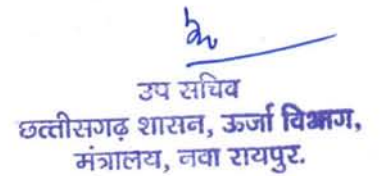 उप सचिव
छत्तीसगढ़ शासन, ऊर्जा विभाग,
मंत्रालय, नवा रायपुर.